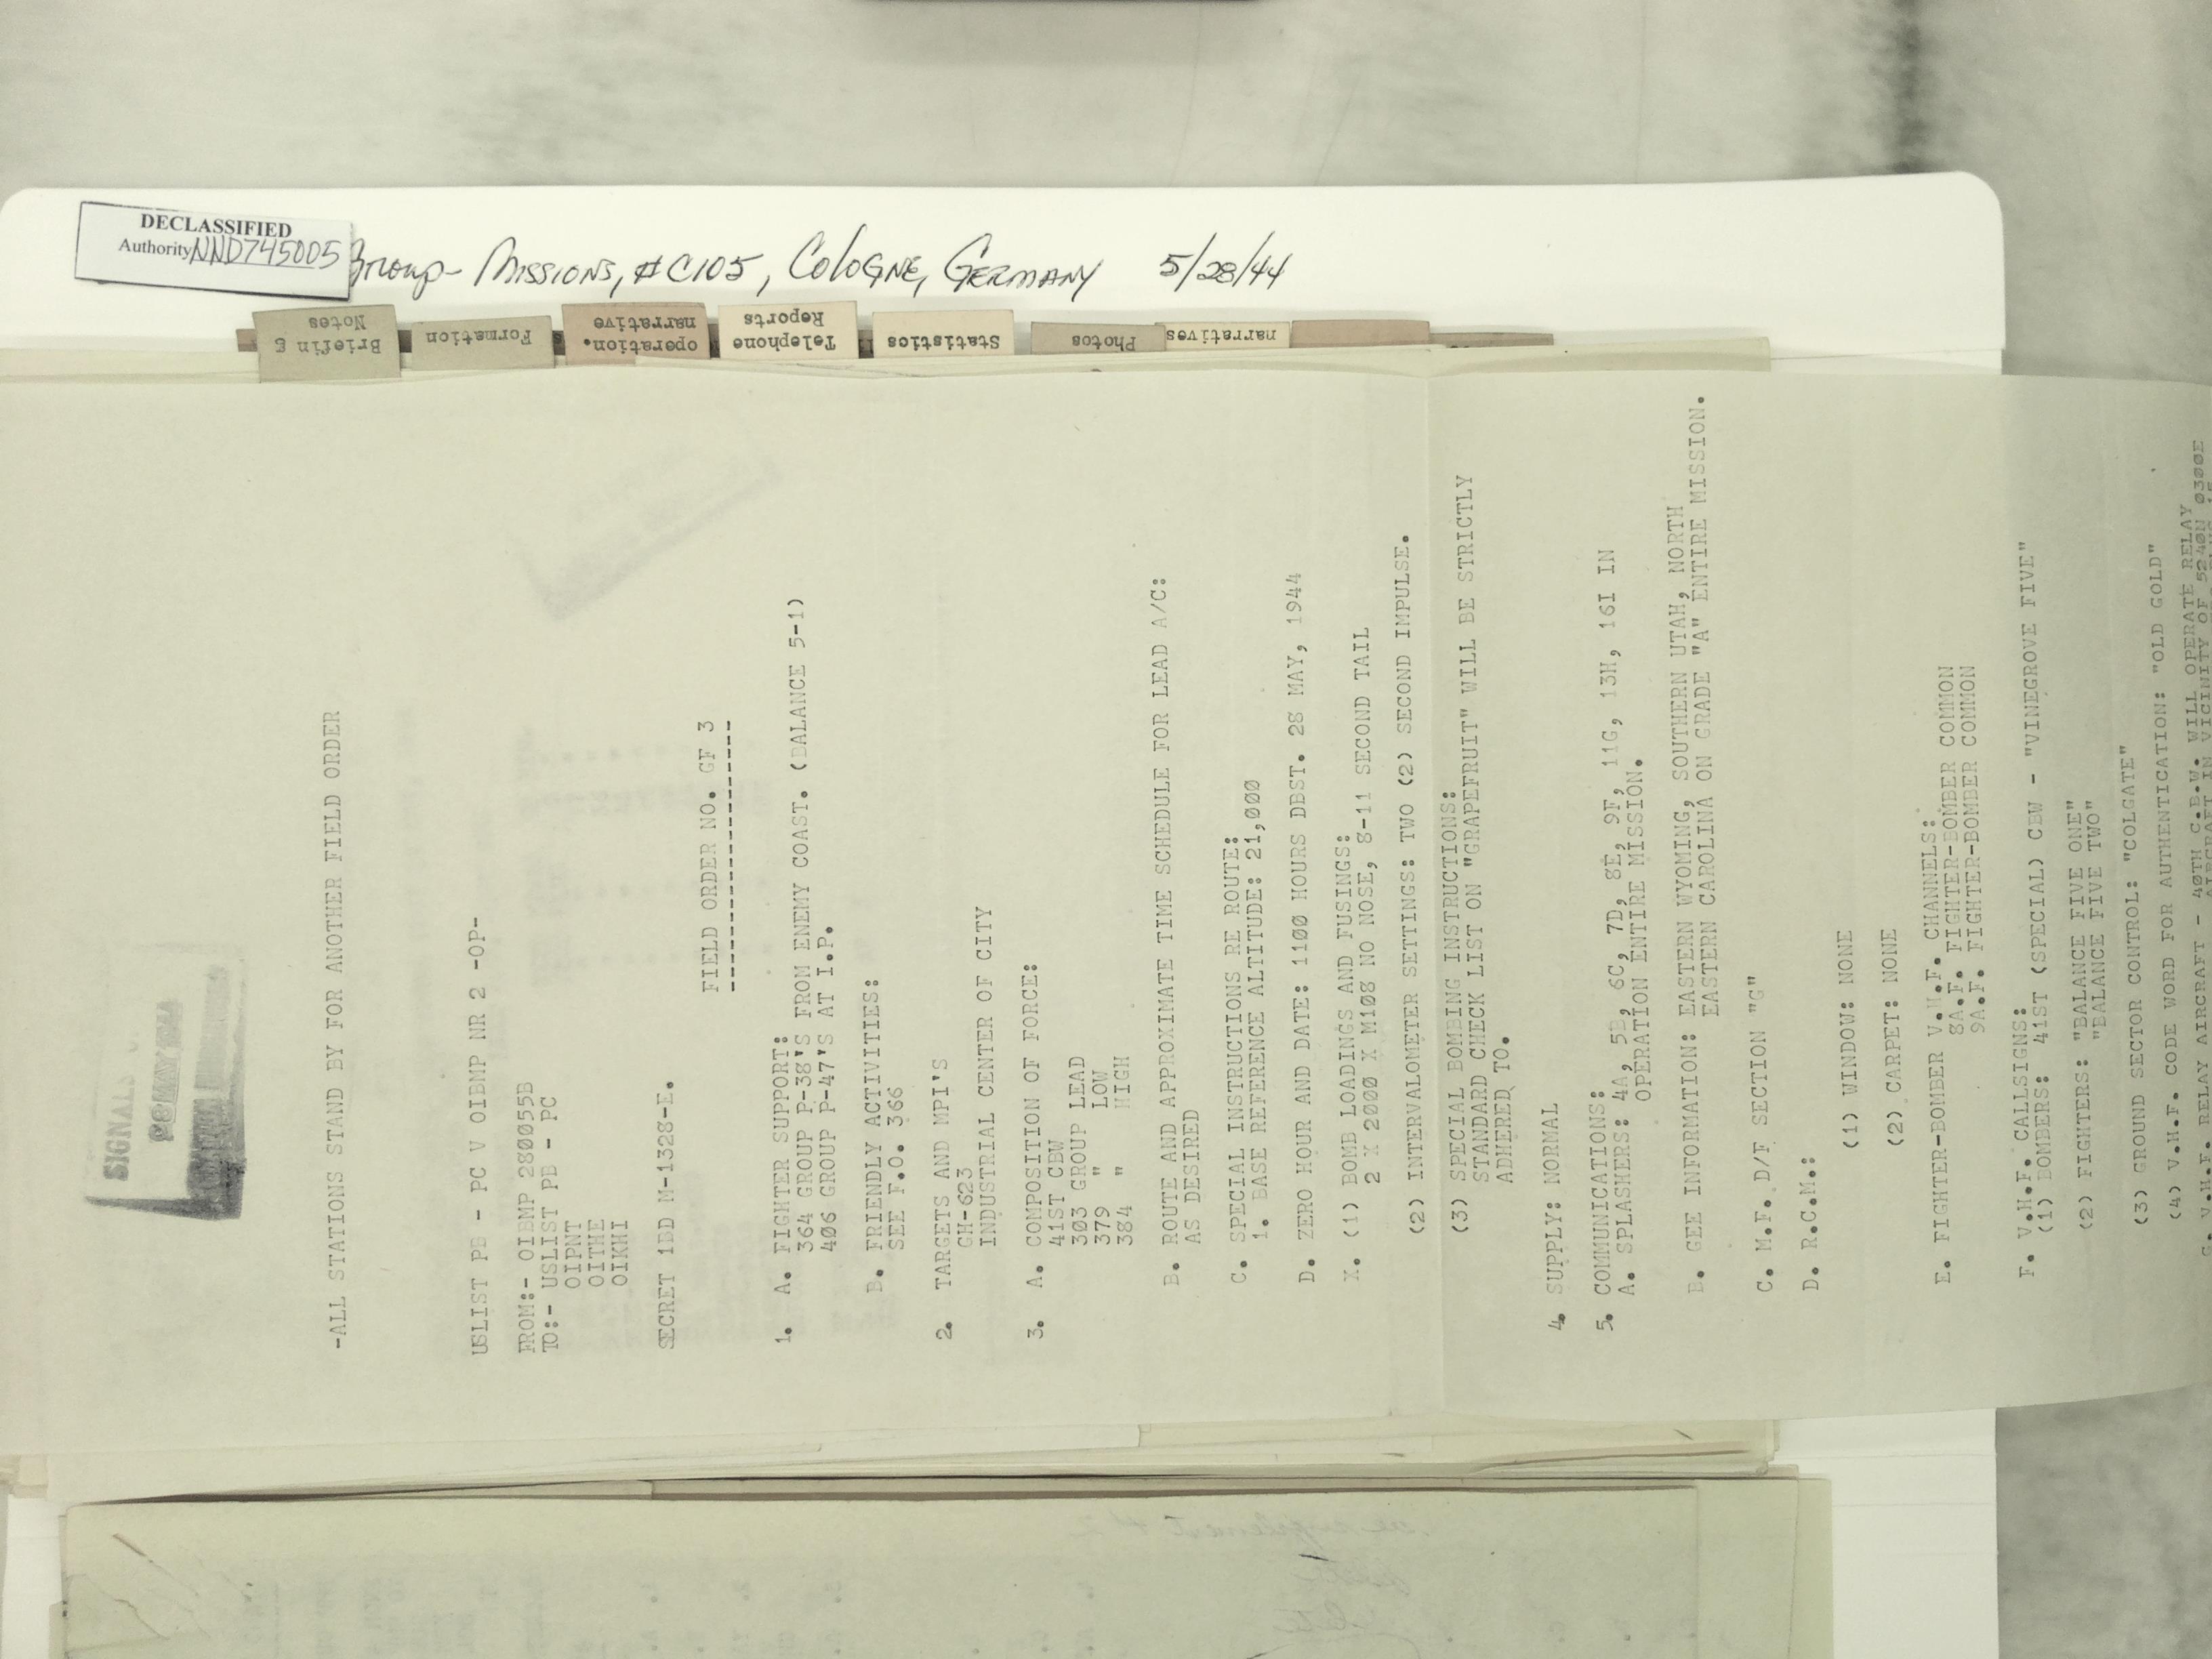 DECLASSIFIED
Authority NND745005
Group - Missions, #C105, Cologne, Germany 5/28/44
Briefing
Notes
Formation
operation.
narrative
Telephone
Reports
Statistics
Photos
narratives
SIGNALS
28 MAY 1944
-ALL STATIONS STAND BY FOR ANOTHER FIELD ORDER
USLIST PB - PC V OIBMP NR 2 -OP-
FROM:- OIBMP 280055B
TO:- USLIST PB - PC
OIPNT
OITHE
OIKHI
SECRET 1BD M-1328-E.
FIELD ORDER NO. GF 3
1. A. FIGHTER SUPPORT:
364 GROUP P-38'S FROM ENEMY COAST. (BALANCE 5-1)
406 GROUP P-47'S AT I.P.
B. FRIENDLY ACTIVITIES:
SEE F.O. 366
2. TARGETS AND MPI'S
GH-623
INDUSTRIAL CENTER OF CITY
3. A. COMPOSITION OF FORCE:
41ST CBW
303 GROUP LEAD
379 " LOW
384 " HIGH
B. ROUTE AND APPROXIMATE TIME SCHEDULE FOR LEAD A/C:
AS DESIRED
C. SPECIAL INSTRUCTIONS RE ROUTE:
1. BASE REFERENCE ALTITUDE: 21,000
D. ZERO HOUR AND DATE: 1100 HOURS DBST. 28 MAY, 1944
X. (1) BOMB LOADINGS AND FUSINGS:
2 X 2000 X M108 NO NOSE, 8-11 SECOND TAIL
(2) INTERVALOMETER SETTINGS: TWO (2) SECOND IMPULSE.
(3) SPECIAL BOMBING INSTRUCTIONS:
STANDARD CHECK LIST ON "GRAPEFRUIT" WILL BE STRICTLY
ADHERED TO.
4. SUPPLY: NORMAL
5. COMMUNICATIONS:
A. SPLASHERS: 4A, 5B, 6C, 7D, 8E, 9F, 11G, 13H, 16I IN
OPERATION ENTIRE MISSION.
B. GEE INFORMATION: EASTERN WYOMING, SOUTHERN UTAH, NORTH
EASTERN CAROLINA ON GRADE "A" ENTIRE MISSION.
C. M.F. D/F SECTION "G"
D. R.C.M.:
(1) WINDOW: NONE
(2) CARPET: NONE
E. FIGHTER-BOMBER V.H.F. CHANNELS:
8A.F. FIGHTER-BOMBER COMMON
9A.F. FIGHTER-BOMBER COMMON
F. V.H.F. CALLSIGNS:
(1) BOMBERS: 41ST (SPECIAL) CBW - "VINEGROVE FIVE"
(2) FIGHTERS: "BALANCE FIVE ONE"
"BALANCE FIVE TWO"
(3) GROUND SECTOR CONTROL: "COLGATE"
(4) V.H.F. CODE WORD FOR AUTHENTICATION: "OLD GOLD"
G. V.H.F. RELAY AIRCRAFT - 40TH C.B.W. WILL OPERATE RELAY
AIRCRAFT IN VICINITY OF 5240N 0300E